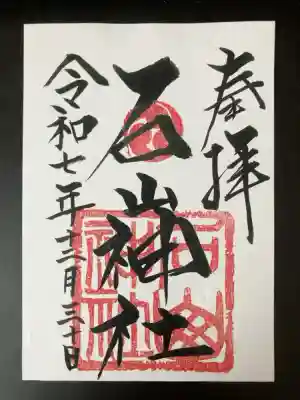 奉拝
石山神社
令和七年十二月三十日